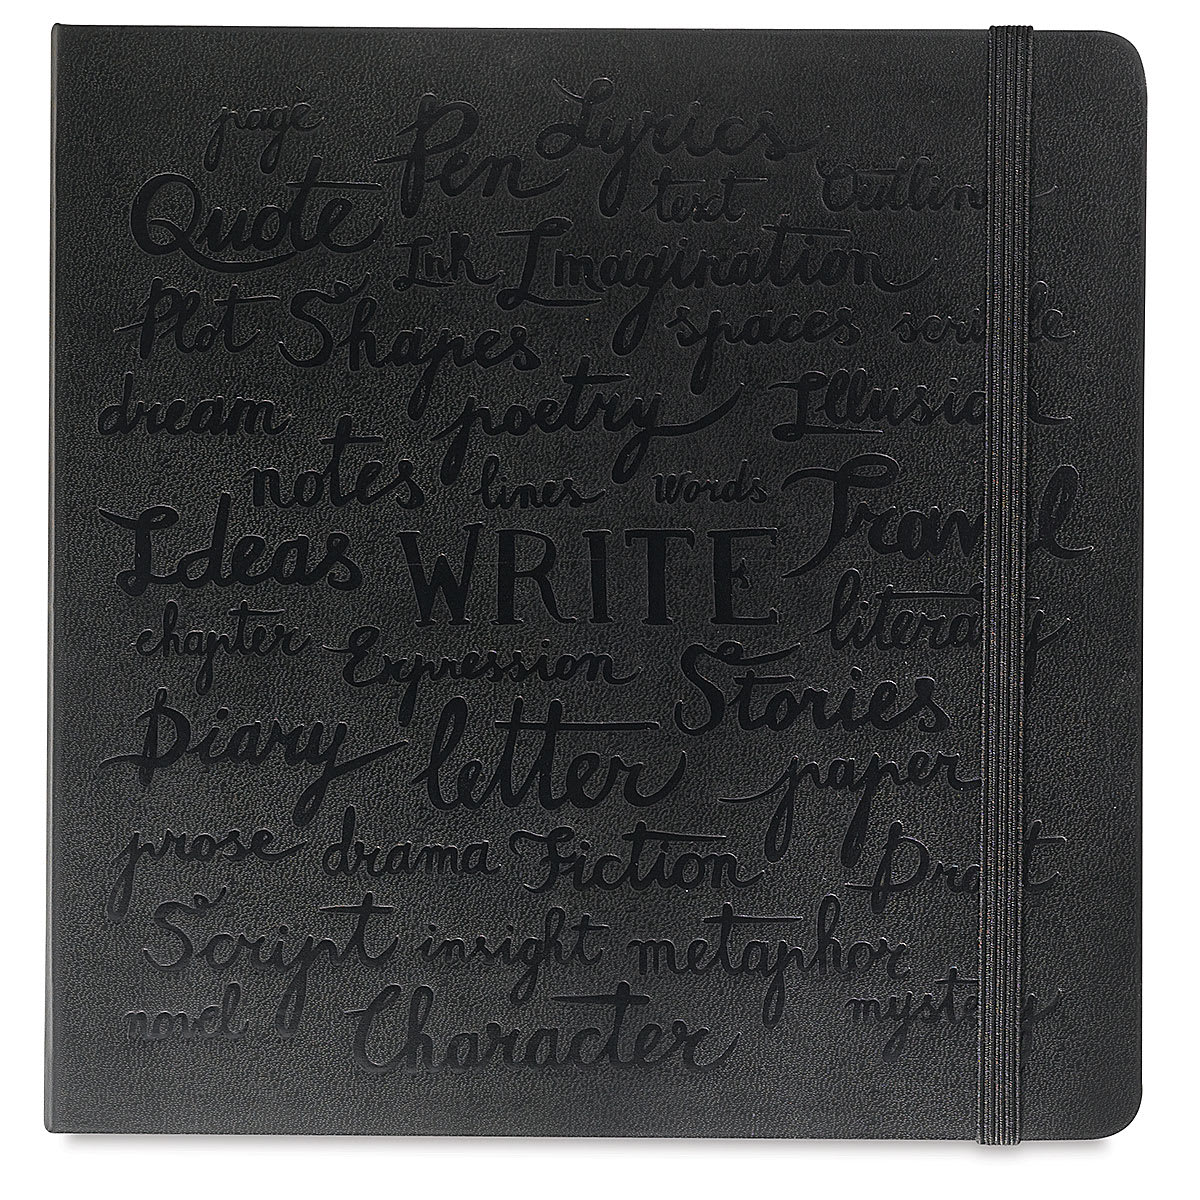 page Pen Lyrics
Quote text Outline
Ink Imagination
Plot Shapes spaces scribble
dream poetry Illusion
notes lines words Travel
Ideas WRITE
chapter Expression literary
Diary letter Stories
paper
prose drama Fiction Draft
Script insight metaphor
novel Character mystery